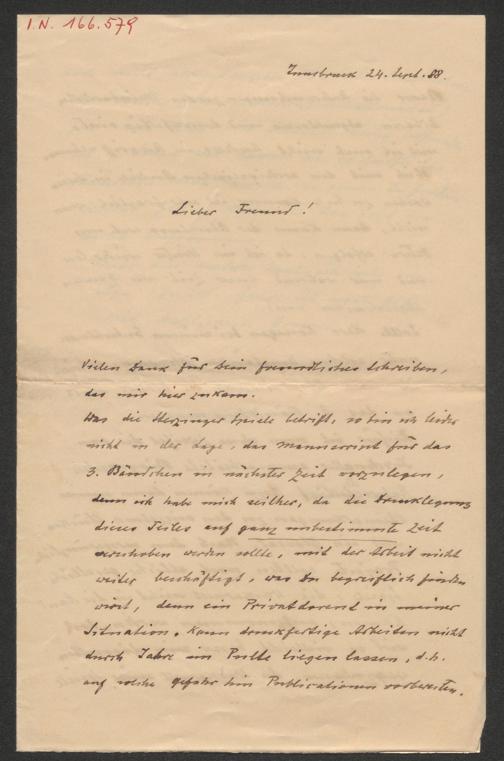 I.N. 166.579
Innsbruck 24. Sept. 88.
Lieber Freund!
Vielen Dank für Dein freundliches Schreiben,
das mir hier zukam.
Was die Sterzinger Spiele betrifft, so bin ich leider
nicht in der Lage, das Manuscript für das
3. Bändchen in nächster Zeit vorzulegen,
denn ich habe mich seither, da die Drucklegung
dieses Teiles auf ganz unbestimmte Zeit
verschoben werden sollte, mit der Arbeit nicht
weiter beschäftigt, was Du begreiflich finden
wirst, denn ein Privatdocent in meiner
Situation kann druckfertige Arbeiten nicht
durch Jahre im Pulte liegen lassen, d.h.
auf solche Gefahr hin Publicationen vorbereiten.